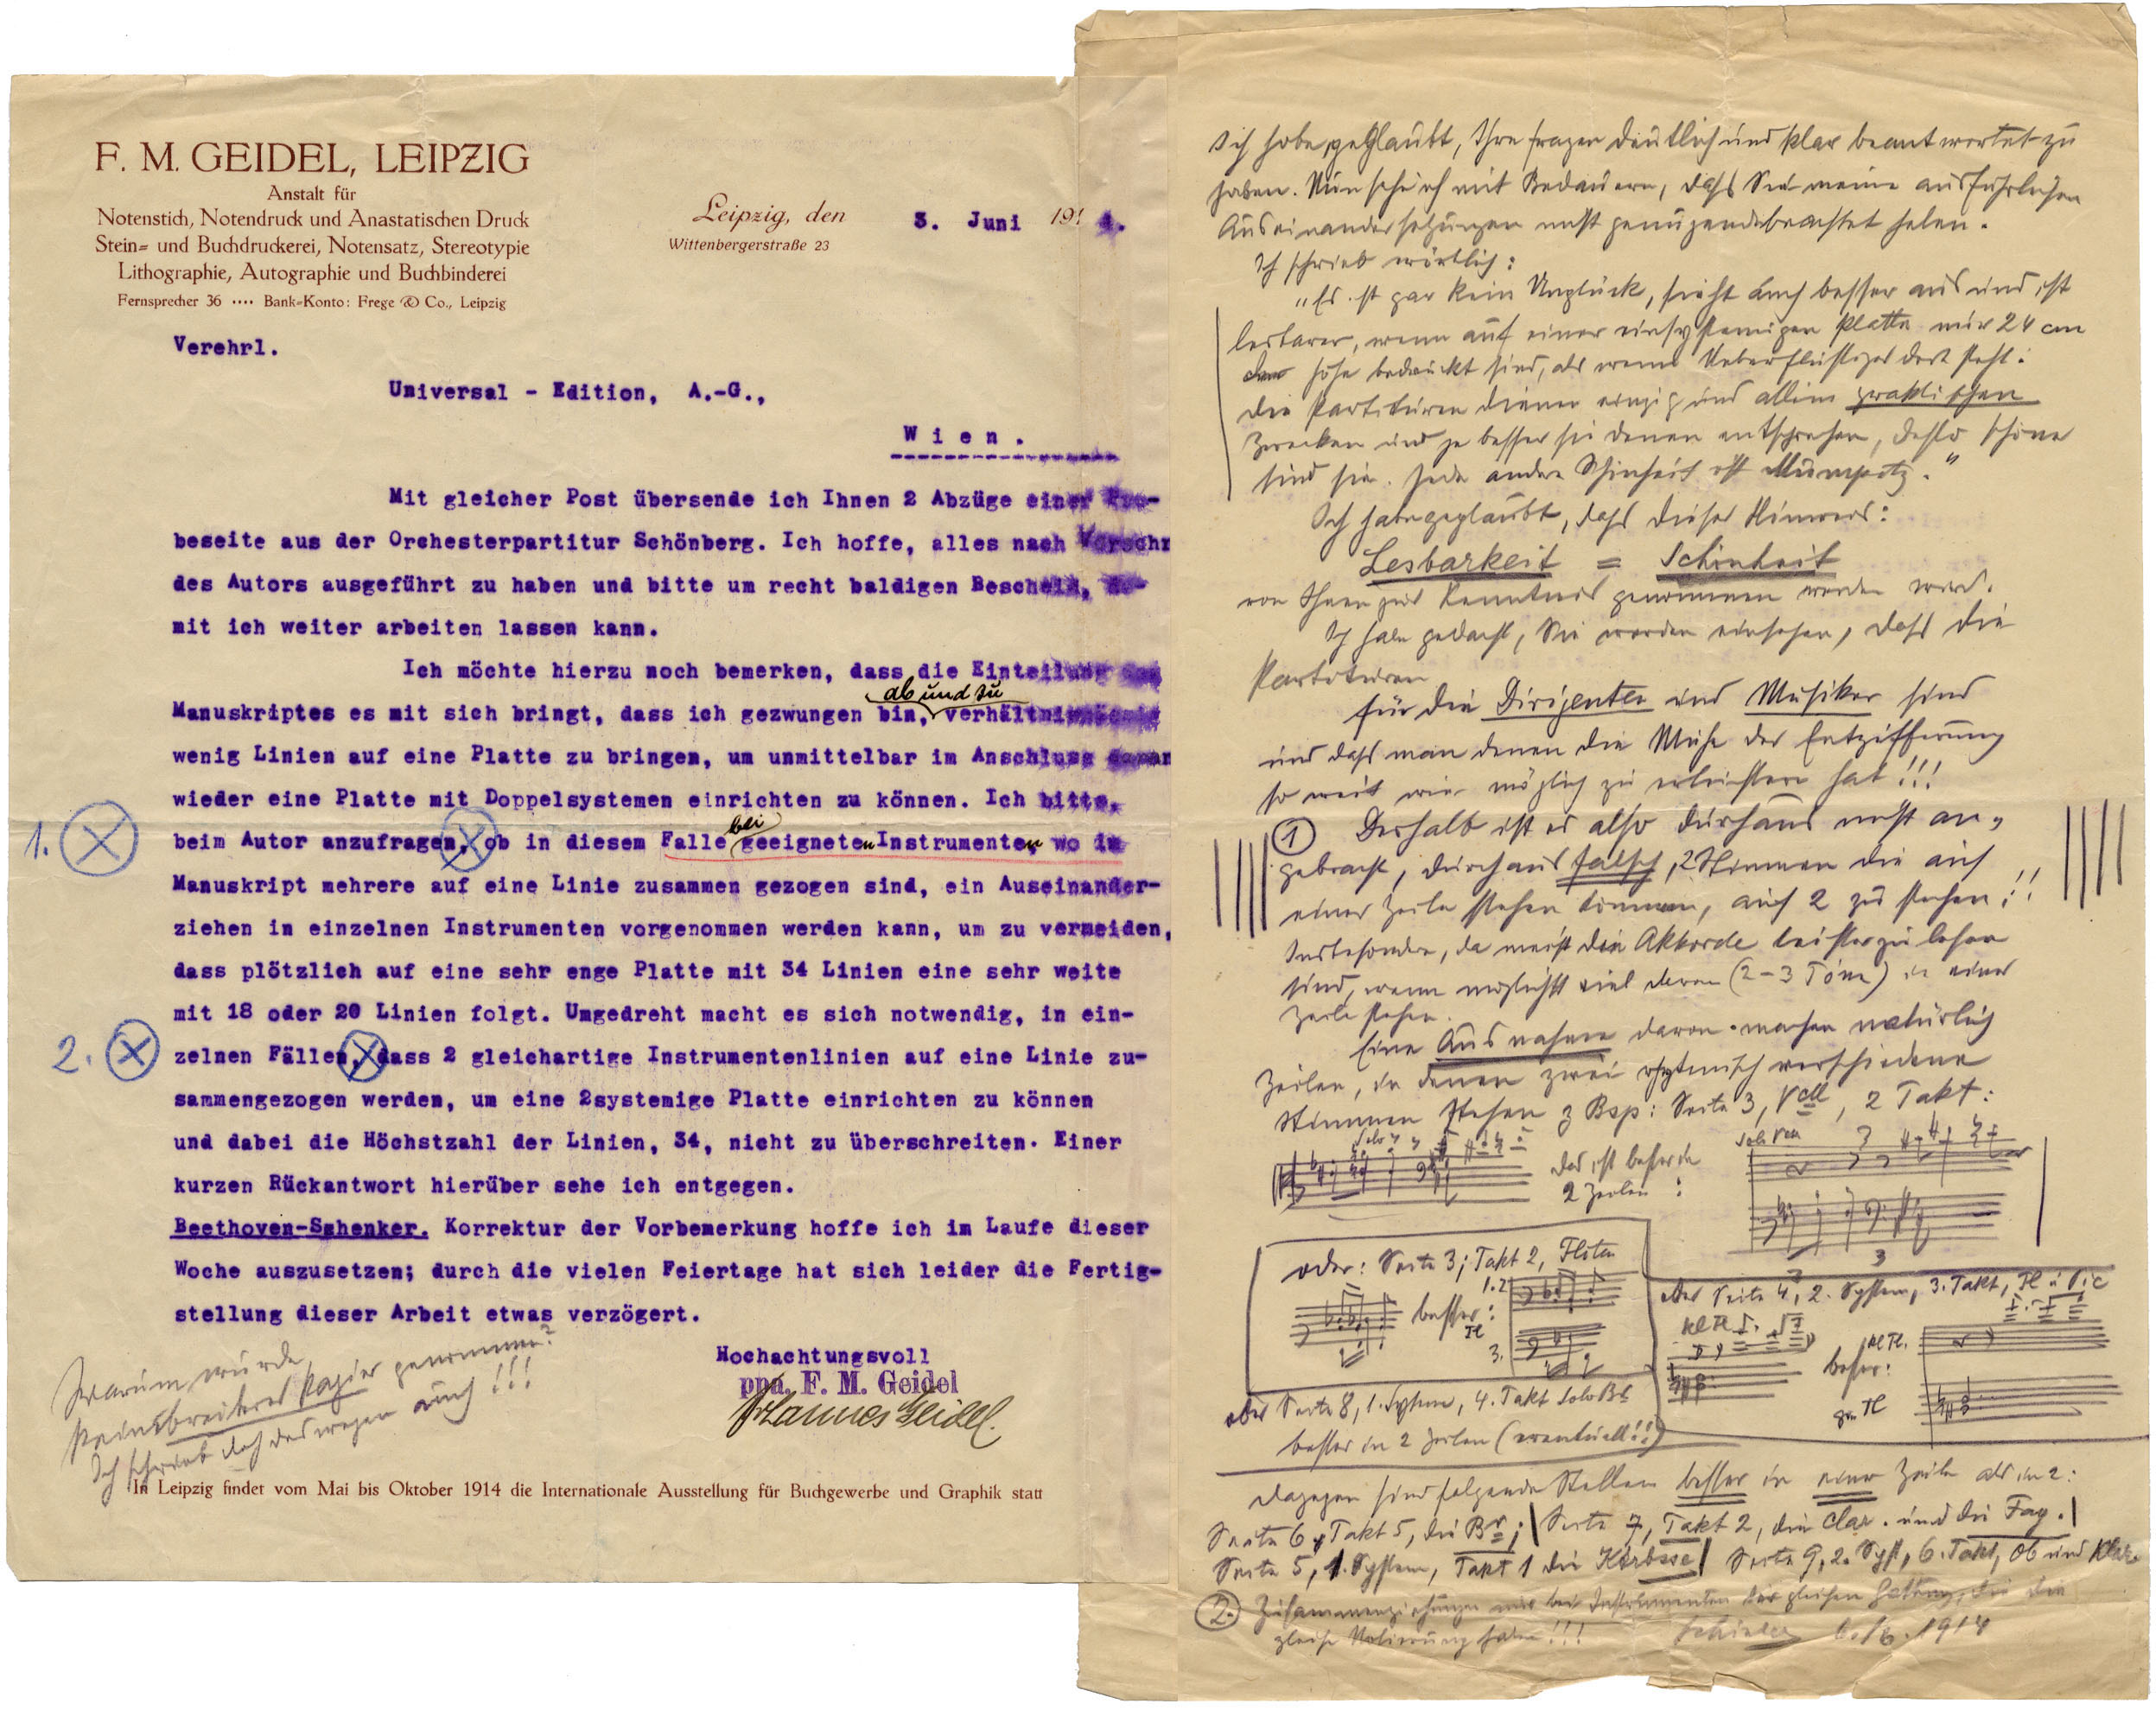 F. M. GEIDEL, LEIPZIG
Anstalt für
Notenstich, Notendruck und Anastatischen Druck
Stein- und Buchdruckerei, Notensatz, Stereotypie
Lithographie, Autographie und Buchbinderei
Fernsprecher 36 •••• Bank-Konto: Frege & Co., Leipzig
Leipzig, den 3. Juni 1914.
Wittenbergerstraße 23
Verehrl.
Universal - Edition, A.-G.,
Wien.
Mit gleicher Post übersende ich Ihnen 2 Abzüge einer Pro-
beseite aus der Orchesterpartitur Schönberg. Ich hoffe, alles nach Vorschr
des Autors ausgeführt zu haben und bitte um recht baldigen Bescheid, da-
mit ich weiter arbeiten lassen kann.
Ich möchte hierzu noch bemerken, dass die Einteilung des
ab und zu
Manuskriptes es mit sich bringt, dass ich gezwungen bin, verhältnismässig
wenig Linien auf eine Platte zu bringen, um unmittelbar im Anschluss daran
wieder eine Platte mit Doppelsystemen einrichten zu können. Ich bitte,
bei
1. beim Autor anzufragen, ob in diesem Falle geeigneten Instrumenten, wo im
Manuskript mehrere auf eine Linie zusammen gezogen sind, ein Auseinander-
ziehen in einzelnen Instrumenten vorgenommen werden kann, um zu vermeiden,
dass plötzlich auf eine sehr enge Platte mit 34 Linien eine sehr weite
mit 18 oder 20 Linien folgt. Umgedreht macht es sich notwendig, in ein-
2. zelnen Fällen, dass 2 gleichartige Instrumentenlinien auf eine Linie zu-
sammengezogen werden, um eine 2systemige Platte einrichten zu können
und dabei die Höchstzahl der Linien, 34, nicht zu überschreiten. Einer
kurzen Rückantwort hierüber sehe ich entgegen.
Beethoven-Schenker. Korrektur der Vorbemerkung hoffe ich im Laufe dieser
Woche auszusetzen; durch die vielen Feiertage hat sich leider die Fertig-
stellung dieser Arbeit etwas verzögert.
Hochachtungsvoll
ppa. F. M. Geidel
Johannes Geidel.
Warum wurde
kein breiteres Papier genommen?
Ich schrieb doch deswegen auch!!!
In Leipzig findet vom Mai bis Oktober 1914 die Internationale Ausstellung für Buchgewerbe und Graphik statt
Ich habe geglaubt, Ihre Fragen deutlich und klar beantwortet zu
haben. Nun sehe ich mit Bedauern, dass Sie meine ausführlichen
Auseinandersetzungen nicht genügend beachtet haben.
Ich schrieb wörtlich:
„Es ist gar kein Unglück, sieht auch besser aus und ist
lesbarer, wenn auf einer einsystemigen Platte nur 24 cm
Höhe bedruckt sind, als wenn Ueberflüssiges dort steht.
Die Partituren dienen einzig und allein praktischen
Zwecken und je besser sie denen entsprechen, desto schöner
sind sie. Jede andre Schönheit ist Mumpitz."
Ich habe geglaubt, dass dieser Hinweis:
Lesbarkeit = Schönheit
von Ihnen zur Kenntnis genommen werden wird.
Ich habe gedacht, Sie werden einsehen, dass die
Partituren
für die Dirigenten und Musiker sind
und dass man denen die Mühe der Entzifferung
so weit wie möglich zu erleichtern hat!!!
1 Deshalb ist es also durchaus nicht an-
gebracht, durchaus falsch, 2 Stimmen die auf
einer Zeile stehen können, auf 2 zu stechen!!
Insbesondre, da meist die Akkorde leichter zu lesen
sind, wenn möglichst viel davon (2-3 Töne) in einer
Zeile stehen.
Eine Ausnahme davon machen natürlich
Zeilen, in denen zwei rhytmisch verschiedene
Stimmen stehen z Bsp: Seite 3, Vcll, 2 Takt:
das ist besser in
2 Zeilen:
Solo Vcll
oder: Seite 3, Takt 2, Flöten
besser:
1.2
Fl
3.
oder Seite 4, 2. System, 3. Takt, Fl u Pic
kl Fl
besser:
kl Fl.
gr Fl
oder Seite 8, 1. System, 4. Takt Solo Br
besser in 2 Zeilen (eventuell!!)
Dagegen sind folgende Stellen besser in einer Zeile als in 2:
Seite 6, Takt 5, die Br; Seite 7, Takt 2, die Clar. und die Fag.
Seite 5, 1. System, Takt 1 die Kbässe Seite 9, 2. Syst, 6. Takt, Ob und Klar.
2. Zusammenziehungen nur bei Instrumenten der gleichen Gattung, die die
gleiche Notierung haben!!!
6./6. 1914